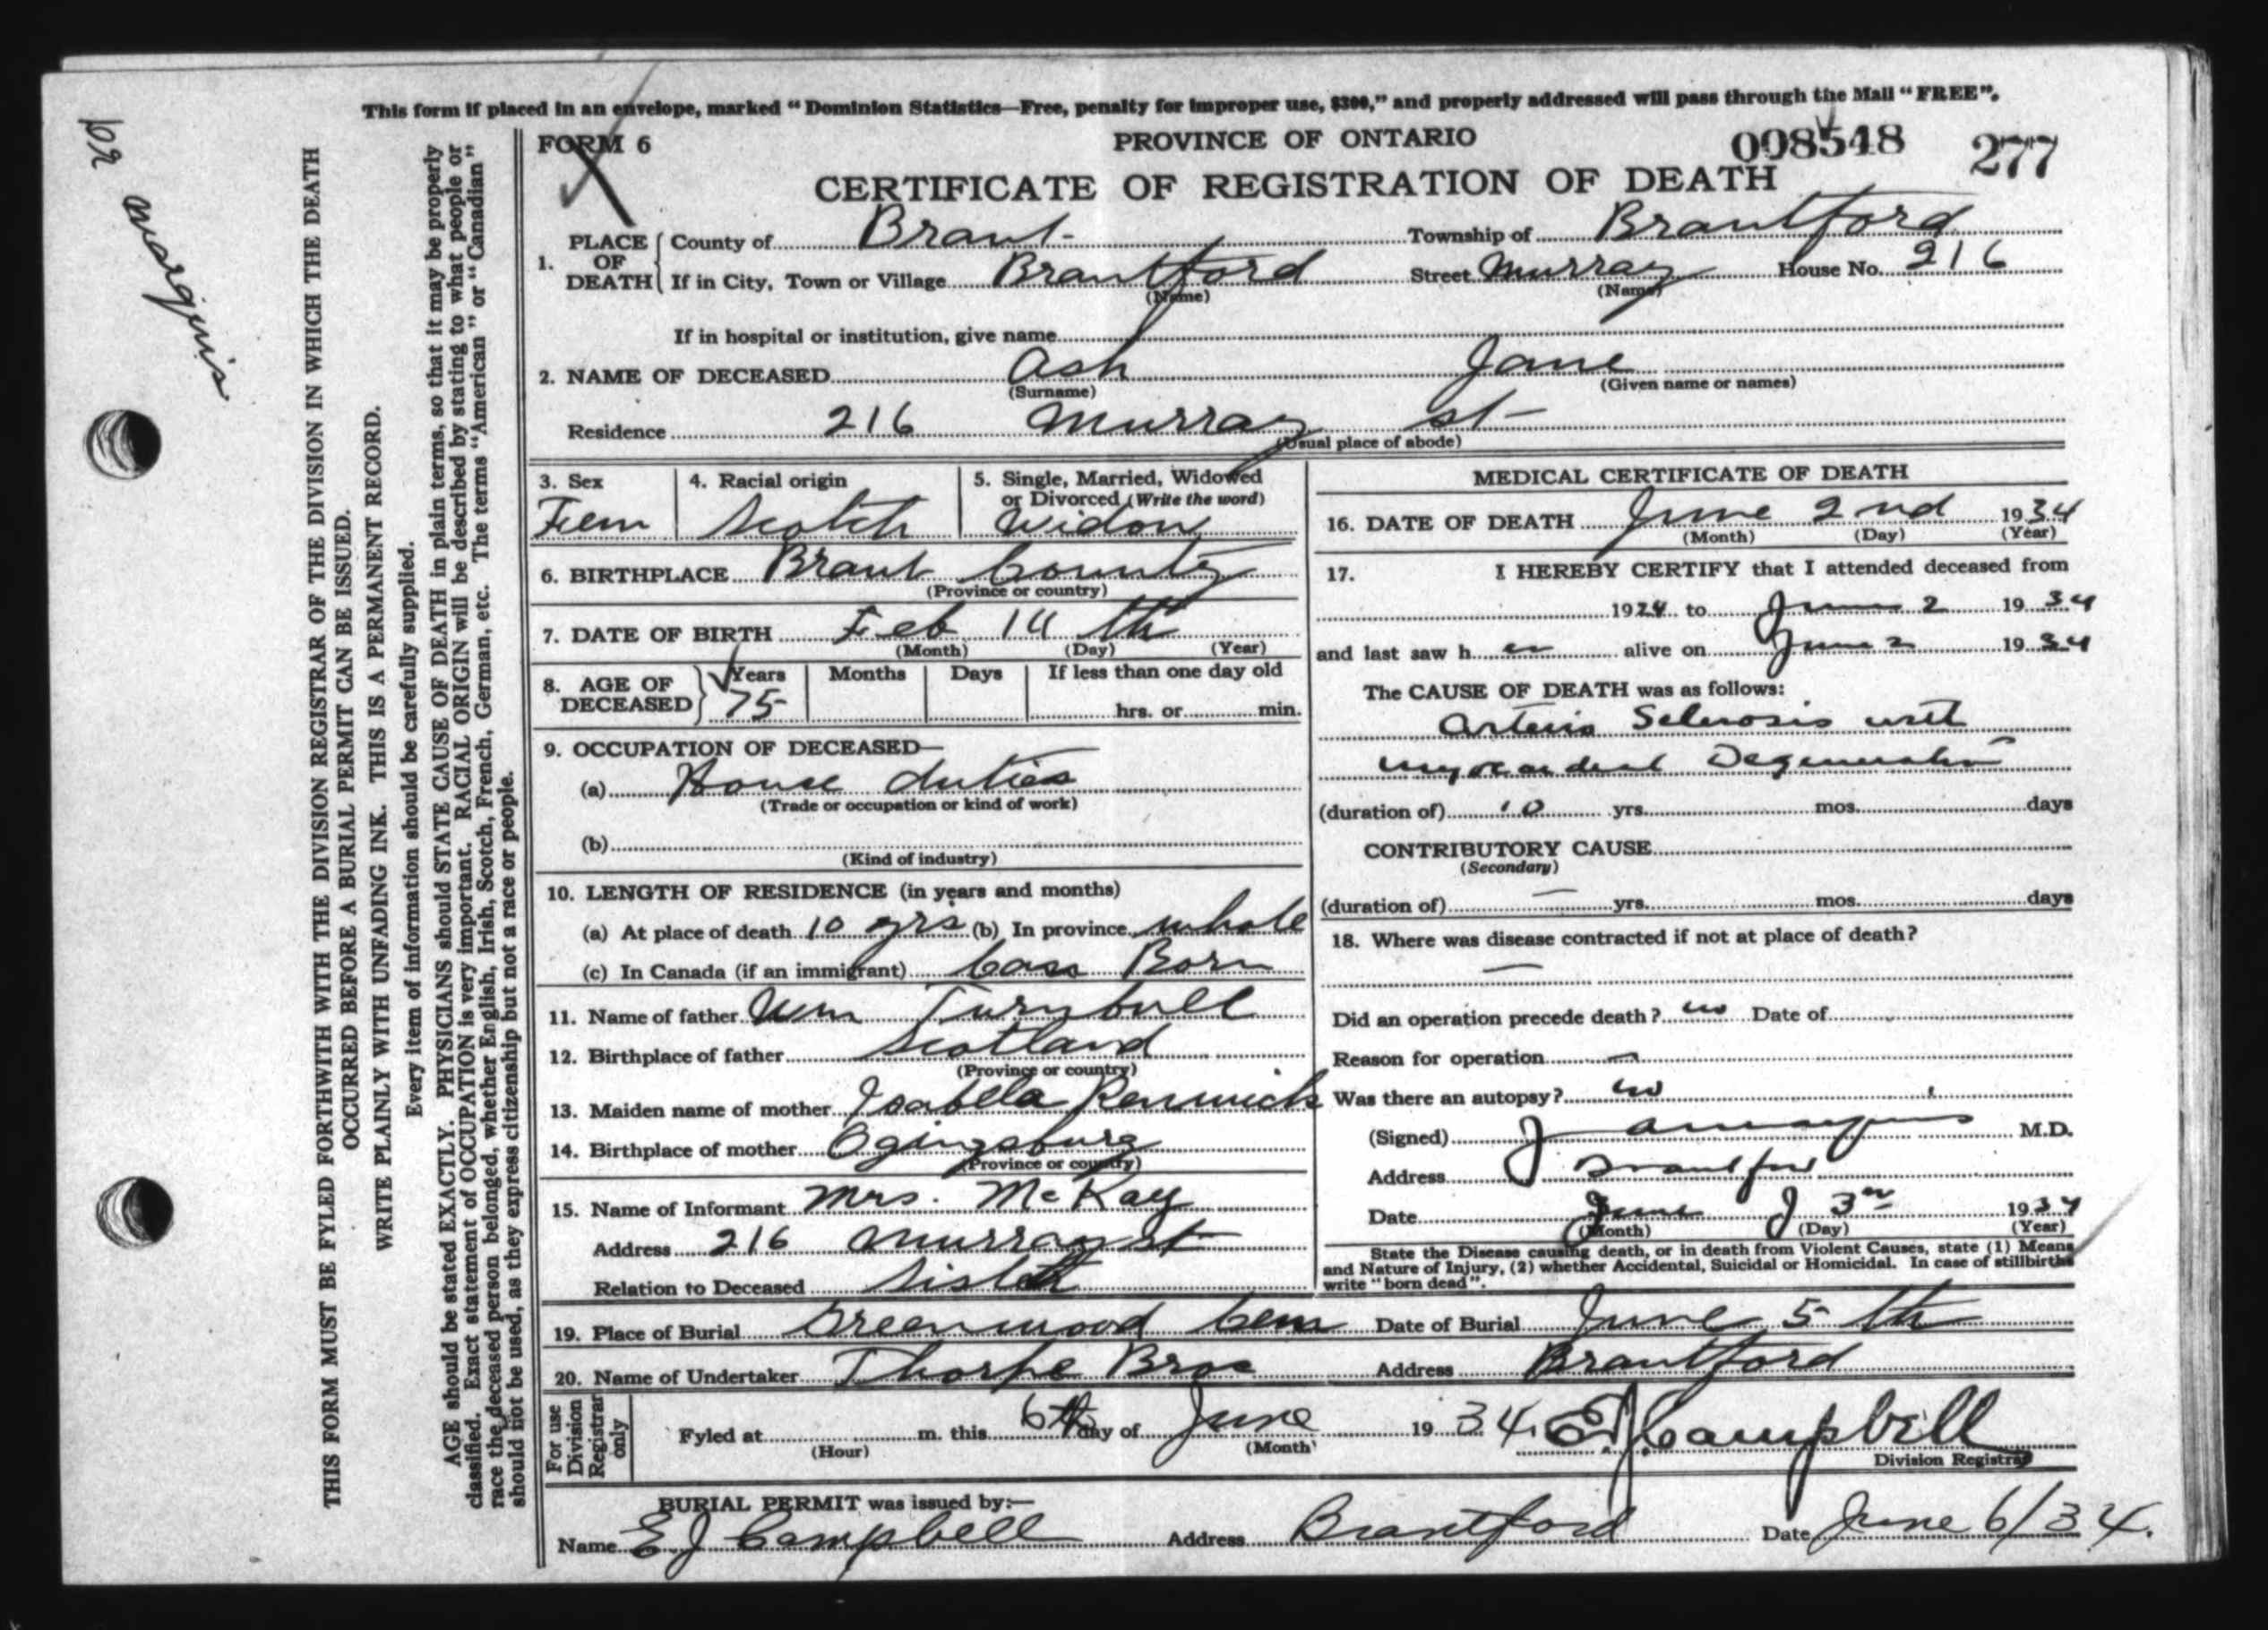 This form if placed in an envelope, marked “Dominion Statistics—Free, penalty for improper use, $300,” and properly addressed will pass through the Mail “FREE”.
FORM 6 PROVINCE OF ONTARIO 008518 277
CERTIFICATE OF REGISTRATION OF DEATH
1. PLACE OF DEATH County of Brant Township of Brantford
If in City, Town or Village Brantford (Name) Street Murray (Name) House No. 216
If in hospital or institution, give name
2. NAME OF DECEASED Ash (Surname) Jane (Given name or names)
Residence 216 Murray st (Usual place of abode)
3. Sex Fem
4. Racial origin Scotch
5. Single, Married, Widowed or Divorced (Write the word) Widow
6. BIRTHPLACE Brant County
(Province or country)
7. DATE OF BIRTH Feb 14 th
(Month) (Day) (Year)
8. AGE OF DECEASED Years 75 Months Days If less than one day old
hrs. or min.
9. OCCUPATION OF DECEASED—
(a) House duties
(Trade or occupation or kind of work)
(b)
(Kind of industry)
10. LENGTH OF RESIDENCE (in years and months)
(a) At place of death 10 yrs (b) In province whole
(c) In Canada (if an immigrant) Born
11. Name of father Wm Turnbull
12. Birthplace of father Scotland
(Province or country)
13. Maiden name of mother Isabella Renwick
14. Birthplace of mother
(Province or country)
15. Name of Informant Mrs. McKay
Address 216 Murray st
Relation to Deceased Sister
MEDICAL CERTIFICATE OF DEATH
16. DATE OF DEATH June 2nd 1934
(Month) (Day) (Year)
17. I HEREBY CERTIFY that I attended deceased from
1924 to June 2 1934
and last saw her alive on June 2 1934
The CAUSE OF DEATH was as follows:
Arterio Sclerosis with
myocardial Degeneration
(duration of) 10 yrs. mos. days
CONTRIBUTORY CAUSE
(Secondary)
(duration of) — yrs. mos. days
18. Where was disease contracted if not at place of death?
—
Did an operation precede death? no Date of
Reason for operation —
Was there an autopsy? no
(Signed) J M.D.
Address Brantford
Date June 3rd 1934
(Month) (Day) (Year)
State the Disease causing death, or in death from Violent Causes, state (1) Means
and Nature of Injury, (2) whether Accidental, Suicidal or Homicidal. In case of stillbirths
write “born dead”.
19. Place of Burial Greenwood Cem Date of Burial June 5 th
20. Name of Undertaker Thorpe Bros Address Brantford
For use Division Registrar only
Fyled at m. this 6th day of June 1934. EJ Campbell
(Hour) (Month) Division Registrar
BURIAL PERMIT was issued by:—
Name E J Campbell Address Brantford Date June 6/34.
THIS FORM MUST BE FYLED FORTHWITH WITH THE DIVISION REGISTRAR OF THE DIVISION IN WHICH THE DEATH
OCCURRED BEFORE A BURIAL PERMIT CAN BE ISSUED.
WRITE PLAINLY WITH UNFADING INK. THIS IS A PERMANENT RECORD.
Every item of information should be carefully supplied.
AGE should be stated EXACTLY. PHYSICIANS should STATE CAUSE OF DEATH in plain terms, so that it may be properly
classified. Exact statement of OCCUPATION is very important. RACIAL ORIGIN will be described by stating to what people or
race the deceased person belonged, whether English, Irish, Scotch, French, German, etc. The terms “American” or “Canadian”
should not be used, as they express citizenship but not a race or people.
Marquis